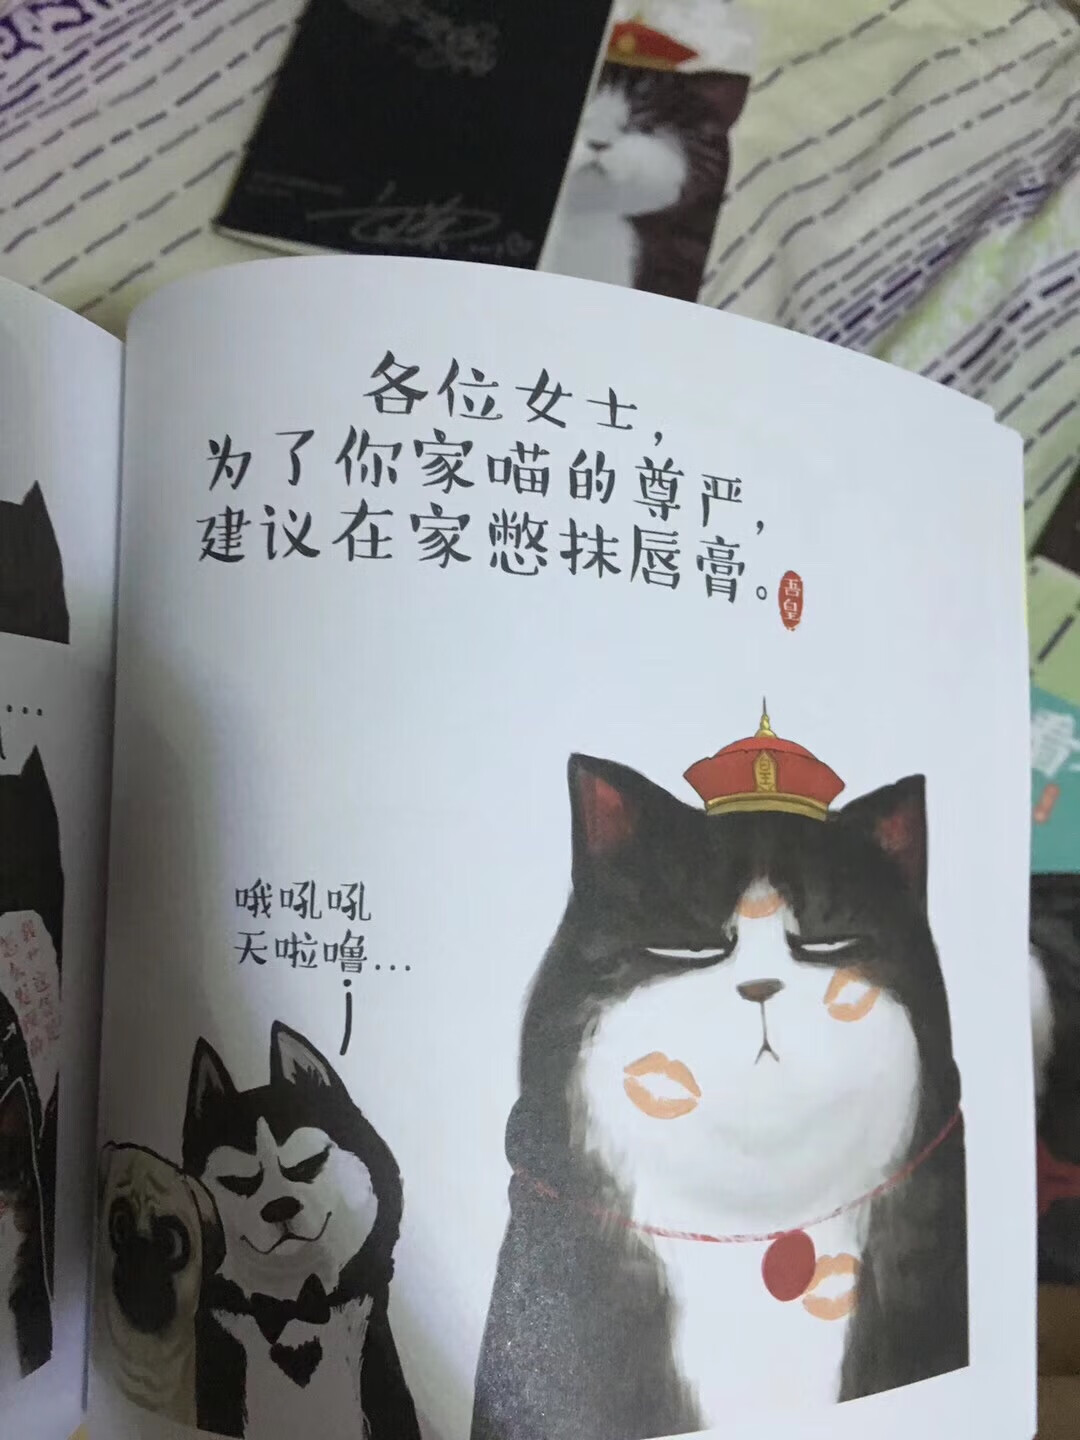 各位女士，
为了你家喵的尊严，
建议在家憋抹唇膏。
吾皇
皇
哦吼吼
天啦噜...
看